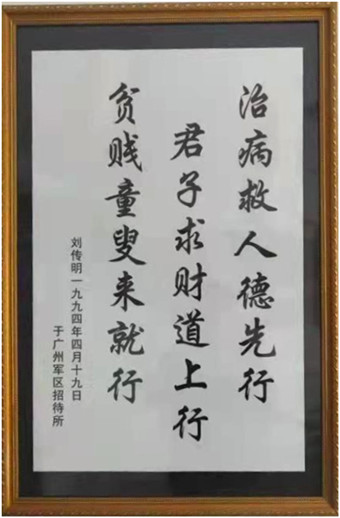 治病救人德先行
君子求财道上行
贫贱童叟来就行
刘传明一九九四年四月十九日
于广州军区招待所